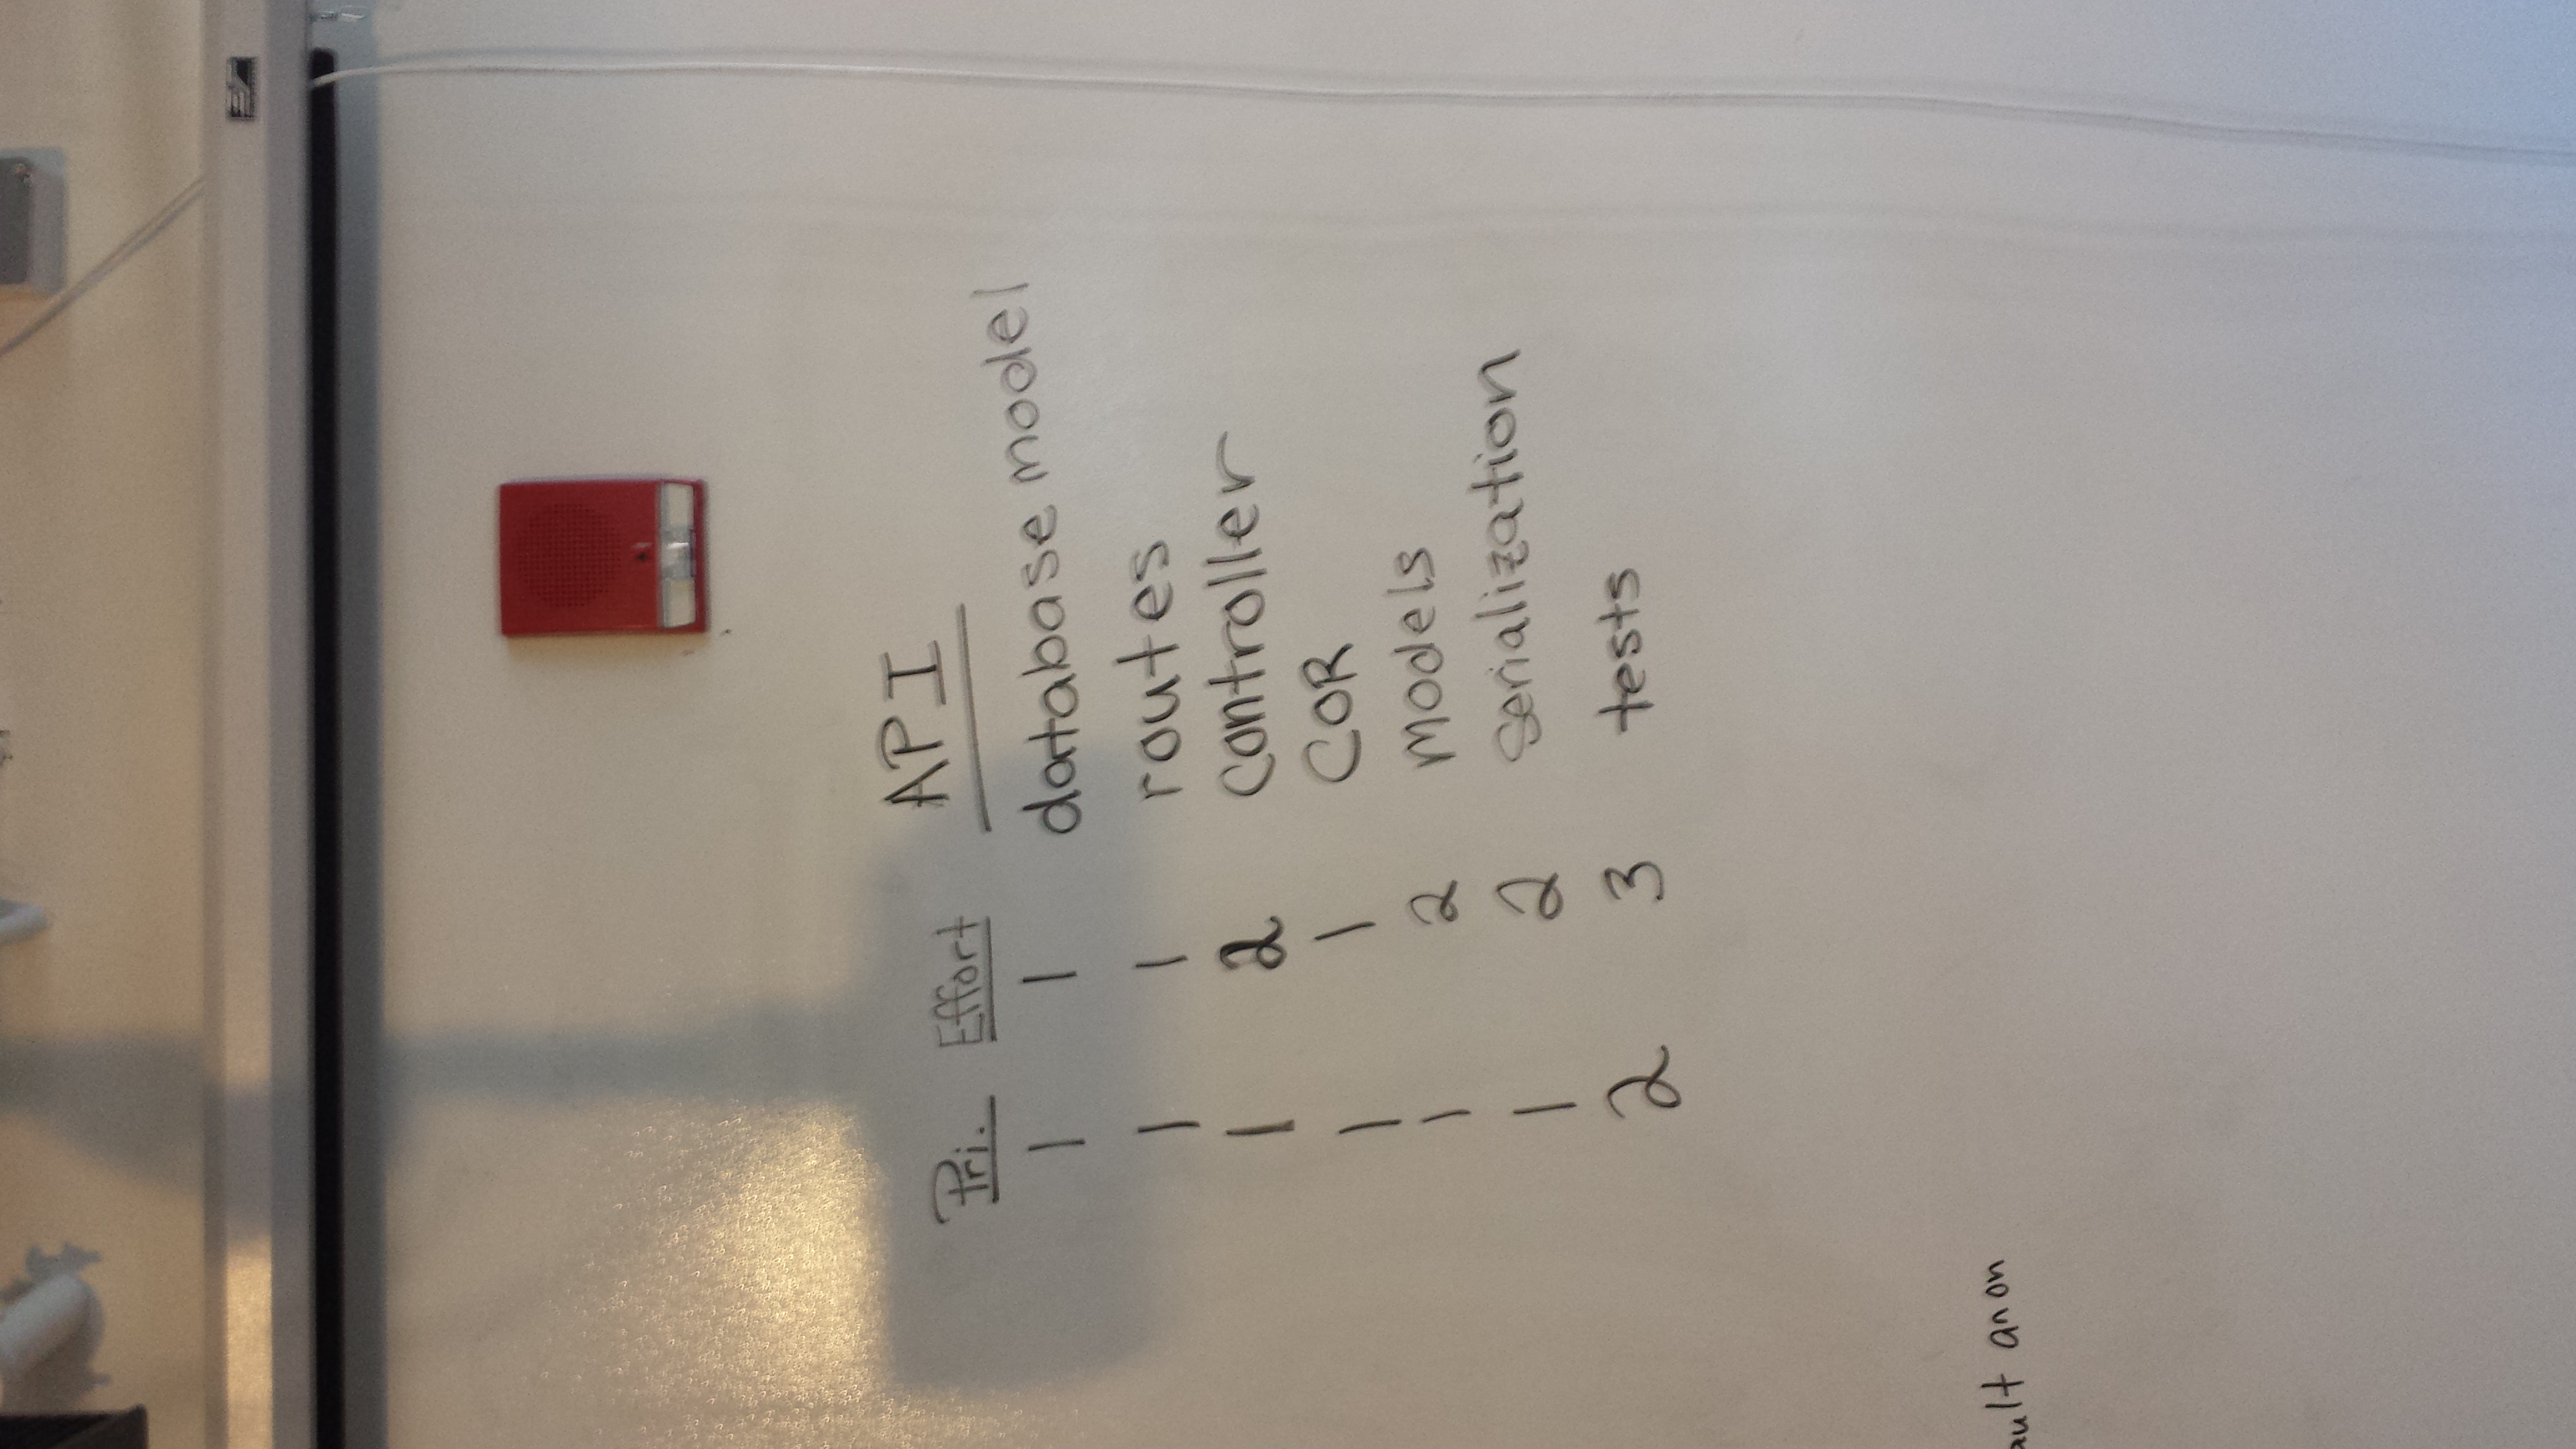 Pri. Effort API
1 1 database model
1 1 routes
1 2 controller
1 1 COR
1 2 models
1 2 serialization
2 3 tests
ault anon